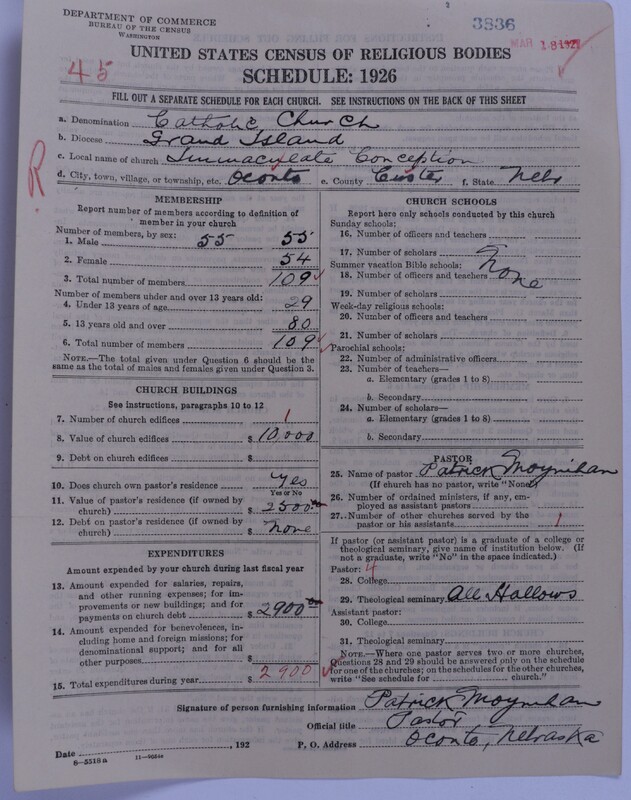 3836
DEPARTMENT OF COMMERCE
BUREAU OF THE CENSUS
WASHINGTON
MAR 18 1927
UNITED STATES CENSUS OF RELIGIOUS BODIES
45
SCHEDULE: 1926
FILL OUT A SEPARATE SCHEDULE FOR EACH CHURCH. SEE INSTRUCTIONS ON THE BACK OF THIS SHEET
a. Denomination Catholic Church
b. Diocese Grand Island
c. Local name of church Immaculate Conception
R
d. City, town, village, or township, etc. Oconto e. County Custer f. State Nebr
MEMBERSHIP
Report number of members according to definition of
member in your church
Number of members, by sex:
1. Male 55 55
2. Female 54
3. Total number of members 109
Number of members under and over 13 years old:
4. Under 13 years of age 29
5. 13 years old and over 80
6. Total number of members 109
NOTE.—The total given under Question 6 should be
same as the total of males and females given under Question 3.
CHURCH BUILDINGS
See instructions, paragraphs 10 to 12
7. Number of church edifices 1
8. Value of church edifices $ 10,000
9. Debt on church edifices $
10. Does church own pastor's residence Yes
Yes or No
11. Value of pastor's residence (if owned by
church) $ 2500.00
12. Debt on pastor's residence (if owned by
church) $ None
EXPENDITURES
Amount expended by your church during last fiscal year
13. Amount expended for salaries, repairs,
and other running expenses; for im-
provements or new buildings; and for
payments on church debt $ 2900.00
14. Amount expended for benevolences, in-
cluding home and foreign missions; for
denominational support; and for all
other purposes $
15. Total expenditures during year $ 2900
CHURCH SCHOOLS
Report here only schools conducted by this church
Sunday schools:
16. Number of officers and teachers
17. Number of scholars
None
Summer vacation Bible schools:
18. Number of officers and teachers
19. Number of scholars
Week-day religious schools:
20. Number of officers and teachers
21. Number of scholars
Parochial schools:
22. Number of administrative officers
23. Number of teachers—
a. Elementary (grades 1 to 8)
b. Secondary
24. Number of scholars—
a. Elementary (grades 1 to 8)
b. Secondary
PASTOR
25. Name of pastor Patrick Moynihan
(If church has no pastor, write "None")
26. Number of ordained ministers, if any, em-
ployed as assistant pastors
27. Number of other churches served by the
pastor or his assistants 1
If pastor (or assistant pastor) is a graduate of a college or
theological seminary, give name of institution below. (If
not a graduate, write "No" in the space indicated.)
Pastor: 4
28. College
29. Theological seminary All Hallows
Assistant pastor:
30. College
31. Theological seminary
NOTE.—Where one pastor serves two or more churches,
Questions 28 and 29 should be answered only on the schedule
for one of the churches; on the schedules for the other churches,
write "See schedule for church."
Signature of person furnishing information Patrick Moynihan
Official title Pastor
Date , 192 P. O. Address Oconto, Nebraska
8-5518a